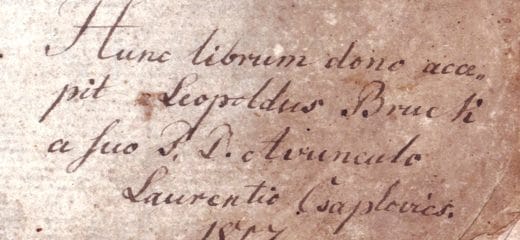 Hunc librum dono acce„
pit Leopoldus Bruck
a suo P. D. Avunculo
Laurentio Csaplovics.